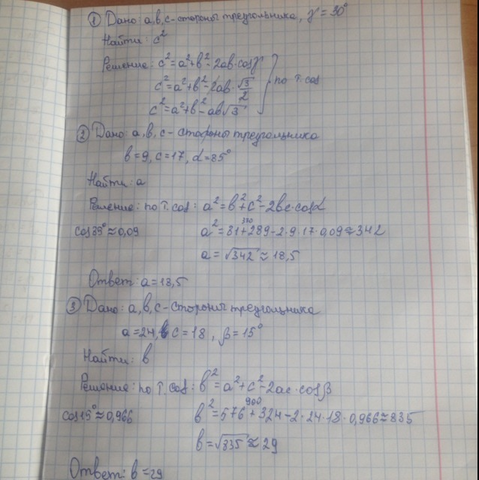 ① Дано: a,b,c-стороны треугольника, γ = 30°
Найти: c²
Решение: c²=a²+b²-2ab·cosγ
c²=a²+b²-2ab·√3/2 } по т.cos
c²=a²+b²-ab√3
② Дано: a,b,c-стороны треугольника
b=9, c=17, α=85°
Найти: a
Решение: по т.cos: a²=b²+c²-2bc·cosα
a²=81+289-2·9·17·0,09≈342
a=√342≈18,5
Ответ: a=18,5
③ Дано: a,b,c-стороны треугольника
a=24, c=18, β=15°
Найти: b
Решение: по т.cos: b²=a²+c²-2ac·cosβ
900
cos15°≈0,966 b²=576+324-2·24·18·0,966≈835
b=√835≈29
Ответ: b=29